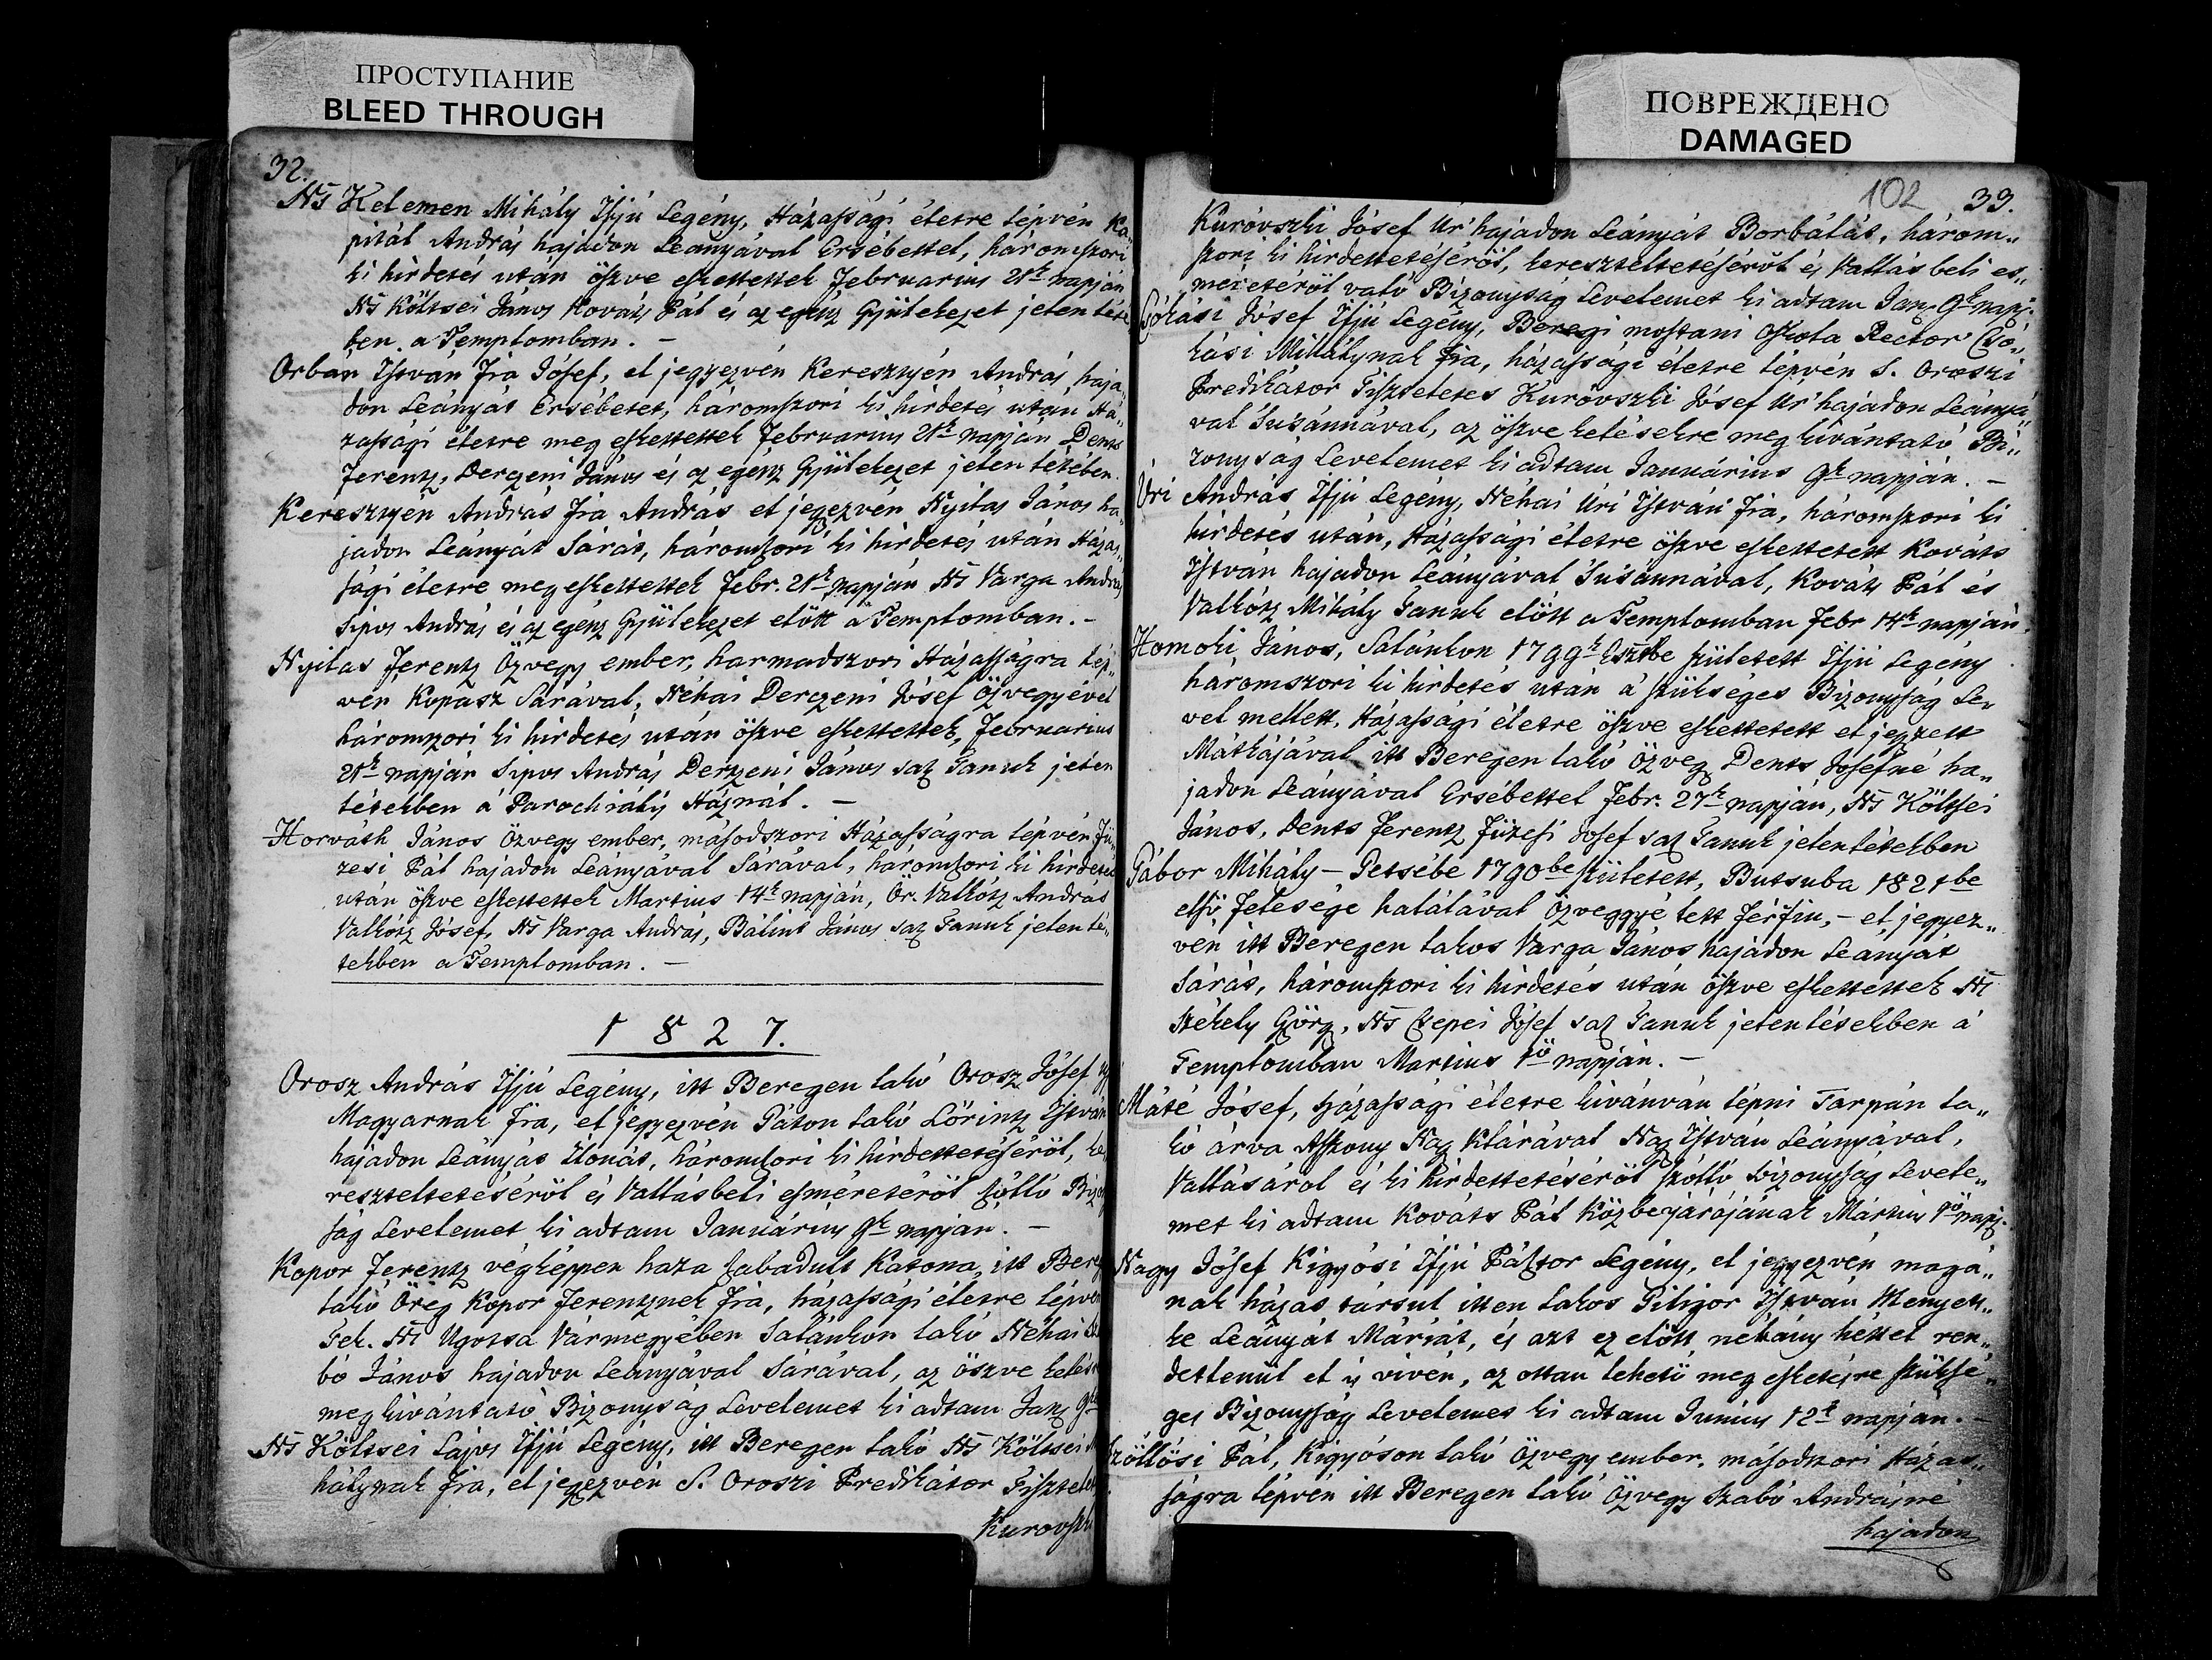 ПРОСТУПАНИЕ
BLEED THROUGH
32.
Ns Kelemen Mihály Ifjú Legény, Házassági életre lépvén Ka„
pitál András hajadon Leányával Ersébettel, háromszori
ki hirdetés után öszve eskettettek Februarius 21k napján
Ns Költsei János Kováts Pál és az egész Gyülekezet jelen lété
ben a Templomban. –
Orbán István Fia Jósef, el jegyezvén Keresztyén András haja„
don Leányát Ersébetet, háromszori ki hirdetés után Há„
zassági életre meg eskettettek Februarius 21k napján Dents
Ferentz, Derczeni János és az egész Gyülekezet jelen létében.
Keresztyén András Fia András el jegyezvén Nyitas János ha„
jadon Leányát Sárát, háromszori ki hirdetés után Házas„
sági életre meg eskettettek Febr. 21k napján Ns Varga András
Sipos András és az egész Gyülekezet elött a Templomban. –
Nyitas Ferentz Özvegy ember, harmadszori Házasságra lép„
vén Kopasz Sárával, Néhai Derczeni Jósef Özvegyével
háromszori ki hirdetés után öszve eskettettek, Februarius
21k napján Sipos András Derczeni János saz Tanuk jelen
létekben á Parochiális Háznál. –
Horváth János Özvegy ember, másodszori Házasságra lépvén Fü„
zesi Pál hajadon Leányával Sárával, háromszori ki hirdetés
után öszve eskettettek Martius 14k napján, Ör. Valkótz András
Valkótz Jósef, Ns Varga András, Bálint János saz Tanuk jelen lé„
tekben a Templomban. –
1827.
Orosz András Ifjú Legény, itt Beregen lakó Orosz Jósef
Magyarnak Fia, el jegyezvén Páton lakó Lőrintz István
hajadon Leányás Ilonás, háromszori ki hirdettetéséröl, ke„
reszteltetéséröl és Vallásbeli esméretéröl szólló Bizony
ság Levelemet ki adtam Januárius 9k napján. –
Kopor Ferentz végképpen haza szabadult Katona, itt Bereg
lakó Öreg Kopor Ferentznek Fia, házassági életre lépvén
Tek. Ns Ugotsa Vármegyében Salánkon lakó Néhai
bó János hajadon Leányával Sárával, az öszve kelésr
meg kívántató Bizonyság Levelemet ki adtam Jan. 9k
Ns Költsei Lajos Ifjú Legény, itt Beregen lakó Ns Költsei Mi
hálynak Fia, el jegyezvén S. Oroszi Predikátor Tisztelet
Kurovszki
ПОВРЕЖДЕНО
DAMAGED
102 33.
Kuróvszki Jósef Úr hajadon Leányát Borbálát, három„
szori ki hirdettetéséröl, kereszteltetéséröl és Vallásbeli es„
méretéröl való Bizonyság Levelemet ki adtam Jan. 9k napj.
Csókási Jósef Ifjú Legény, Beregi mostani Oskola Rector Csó„
kási Mihálynak Fia, házassági életre lépvén S. Oroszi
Predikátor Tiszteletes Kuróvszki Jósef Úr hajadon Leányá„
val Susánnával, az öszve kelésekre meg kívántató Bi„
zonyság Levelemet ki adtam Januárius 9k napján. –
Úri András Ifjú Legény, Néhai Úri István Fia, háromszori ki
hirdetés után, Házassági életre öszve eskettetett Kováts
István hajadon Leányával Susánnával, Kováts Pál és
Valkótz Mihály Tanuk elött a Templomban Febr 14k napján.
Homoki János, Salánkon 1799k Esztbe született Ifjú Legény
háromszori ki hirdetés után á szükséges Bizonyság Le„
vel mellett, Házassági életre öszve eskettetett el jegyzett
Mátkájával itt Beregen lakó Özvegy Dents Josefné ha„
jadon Leányával Ersébettel Febr. 27k napján, Ns Költsei
János, Dents Ferentz Füzesi Josef saz Tanuk jelen létekben
Gábor Mihály – Petsébe 1790be született, Butsuba 1821be
első Felesége halálával Özveggyé lett Férfiu, – el jegyez„
vén itt Beregen lakos Varga János hajadon Leányát
Sárás, háromszori ki hirdetés után öszve eskettettek Ns
Székely Görgy, Ns Csepei Jósef saz Tanuk jelen létekben á
Templomban Martius 1ö napján. –
Máté Jósef, Házassági életre kívánván lépni Tarpán la„
kó árva Asszony Nagy Klárával Nagy István Leányával,
Vallásáról és ki hirdettetéséröl szólló bizonyság Levele„
met ki adtam Kováts Pál Közbenjárójának Mártius 1ö napj.
Nagy Jósef Kigyósi Ifjú Pásztor Legény, el jegyezvén magá„
nak házas társul itten lakos Piligor István Menyets„
ke Leányát Máriát, és azt ez elött néhány héttel ren„
detlenül el is vivén, az ottan lehető meg esketésre szüksé„
ges Bizonyság Levelemes ki adtam Junius 12k napján. –
Szöllösi Pál, Kigyóson lakó Özvegy ember, másodszori Házas„
ságra lépvén itt Beregen lakó Özvegy Szabó Andrásné
hajadon